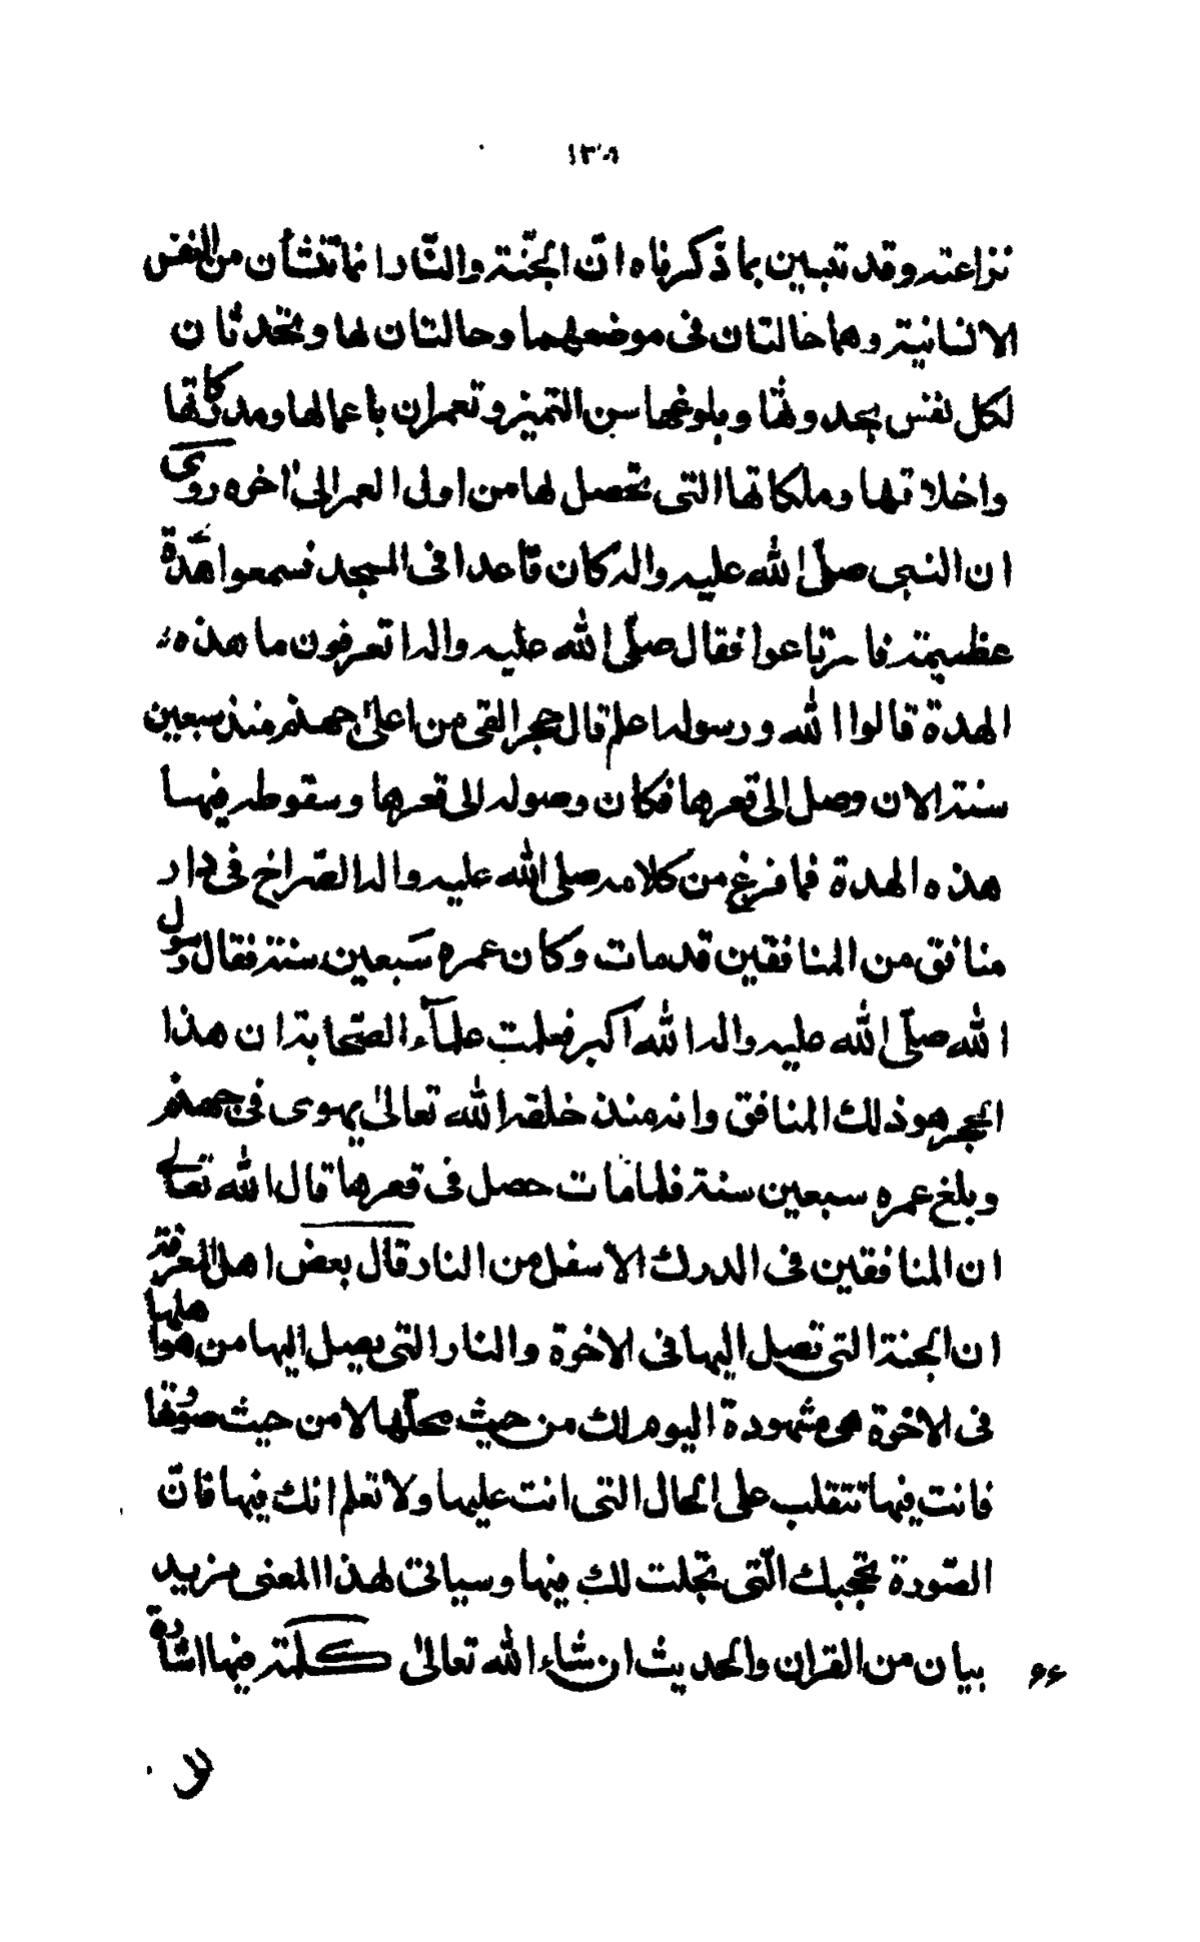 ١٣٨
نزاعته وقد تبين بما ذكرناه ان الجنّة والنّار انما تنشأن من النفس
الانسانية وهما خالتان فى موضعهما وحالتان لها وتحدثان
لكل نفس بحدوثها وبلوغها سن التميز وتعمران باعمالها ومدركاتها
واخلاقها وملكاتها التى تحصل لها من اول العمر الى اخره روى
ان النبى صلّى الله عليه واله كان قاعدا فى المسجد فسمعوا هدة
عظيمة فارتاعوا فقال صلّى الله عليه واله اتعرفون ما هذه
الهدة قالوا الله ورسوله اعلم قال حجر القى من اعلى جهنم منذ سبعين
سنة الان وصل الى قعرها فكان وصوله الى قعرها وسقوطه فيها
هذه الهدة فما فرغ من كلامه صلى الله عليه واله الصّراخ فى دار
منافق من المنافقين قد مات وكان عمره سبعين سنة فقال رسول
الله صلّى الله عليه واله الله اكبر فعلمت علماء الصّحابة ان هذا
الحجر هو ذلك المنافق وانه منذ خلقه الله تعالى يهوى فى جهنم
وبلغ عمره سبعين سنة فلما مات حصل فى قعرها قال الله تعالى
ان المنافقين فى الدرك الاسفل من النار قال بعض اهل المعرفة
ان الجنة التى تصل اليها فى الاخرة والنار التى يصل اليها من هو اهلها
فى الاخرة هى مشهودة اليوم لك من حيث محلّها لا من حيث صورتها
فانت فيها تتقلب على الحال التى انت عليها ولا تعلم انك فيها فانّ
الصّورة تحجبك الّتى تجلت لك فيها وسياتى لهذا المعنى مزيد
بيان من القران والحديث ان شاء الله تعالى كلمة فيها اشارة
۶۶